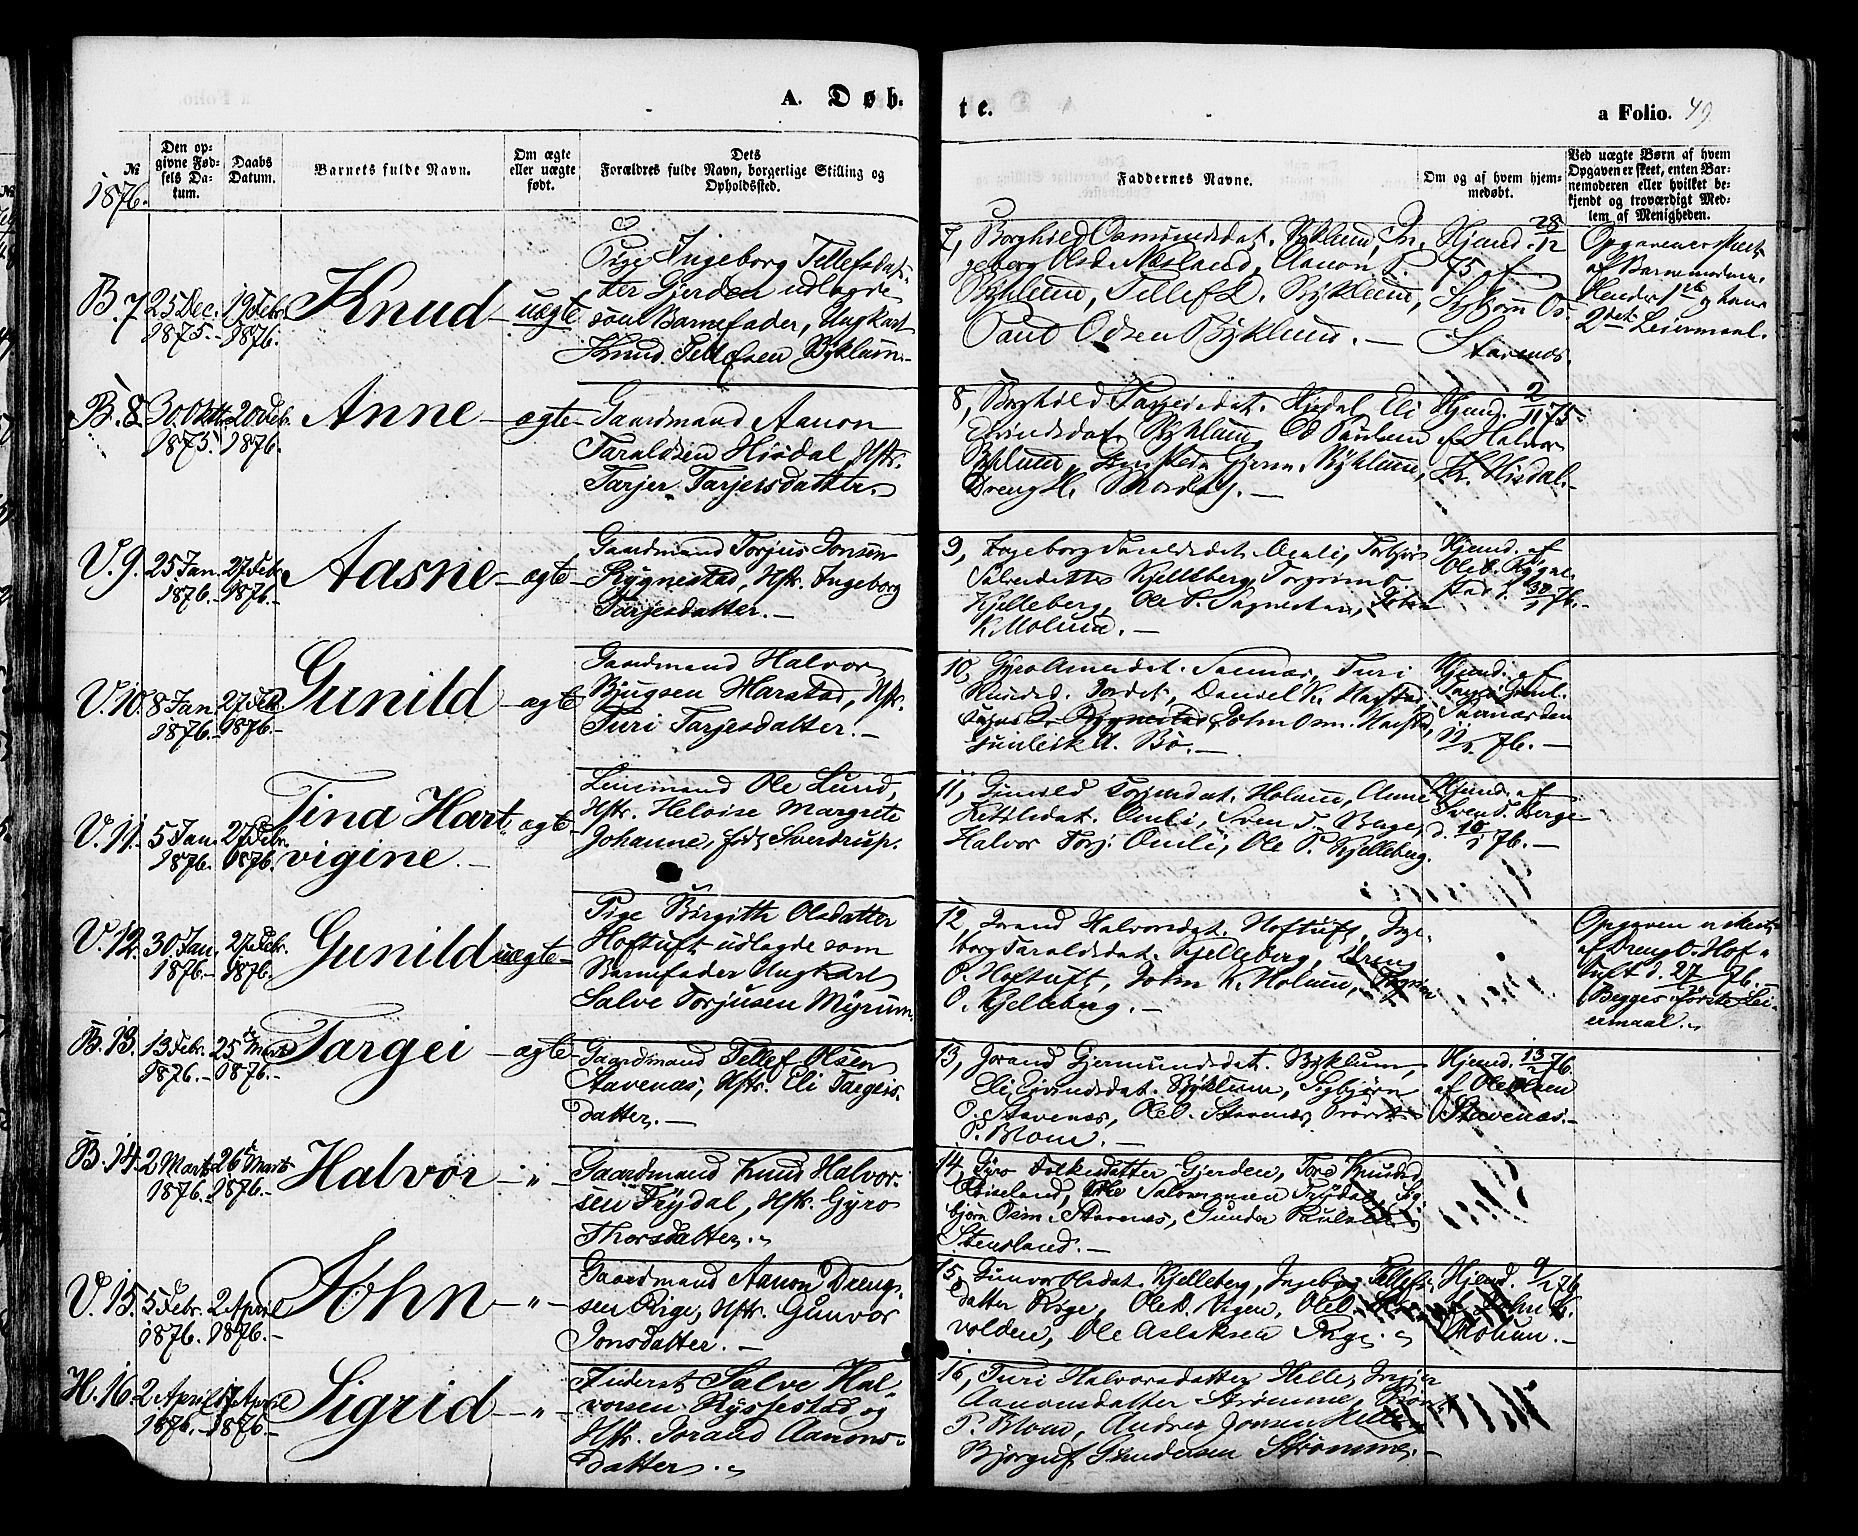 A. Døb-
te.
a Folio. 49
№
1876.
Den op-
givne Fød-
sels Da-
tum.
Daabs
Datum.
Barnets fulde Navn.
Om ægte
eller uægte
født.
Dets
Forældres fulde Navn, borgerlige Stilling og
Opholdssted.
Faddernes Navne.
Om og af hvem hjem-
medøbt.
Ved uægte Børn af hvem
Opgaven er skeet, enten Bar-
nemoderen eller hvilket be-
kjendt og troværdigt Med-
lem af Menigheden.
B. 7. 25 Dec. 1875.- 19 Febr. 1876. Knud - uægte
Pige Ingeborg Tellefsdat-
ter Gjerden udlagde
som Barnefader, Ungkarl
Knud Tellefsen Byklum.-
7, Borghild Osmundsdat. Byklum, In-
geborg Olsd. Næsland, Aanon T.
Byklum, Tellef D. Byklum,
Paul Olsen Byklum. -
Hjemd. 28/12
75 af
Sigbjørn Os.
Stavenæs.
Opgaven er skeet
af Barnemoderen.
Hendes 1ste og hans
2det Leiermaal.
B. 8. 30. Oktb. 1875. 20 Febr. 1876. Anne - ægte -
Gaardmand Aanon
Taraldsen Hisdal, Hstr.
Tarjer Tarjeisdatter.
8, Borghild Tarjeisdat. Hisdal, Eli
Eivindsdat. Byklum, Od Paulsen
Byklum, Gjerm. Byklum,
Dreng H. -
Hjemd. 2/11 75
af Halvor
Hisdal.-
V. 9. 25 Jan. 1876. - 27 Febr. 1876. - Aasne - ægte -
Gaardmand Torjus Jonsen
Rygnestad, Hstr. Ingeborg
Tarjesdatter. -
9, Ingeborg Taraldsdat. Omli, Torbjør
Salvesdatter Kjelleberg, Torgrim O.
Kjelleberg, Ole P. Sagnestad, John
K. Molund. -
Hjemd. af
Ole O. Rygne-
stad d. 30/1 76.-
V. 10. 8 Jan. 1876. - 27 Feb. 1876. - Gunild - ægte
Gaardmand Halvor
Bjugsen Harstad, Hstr.
Turi Tarjesdatter. -
10, Gyro Amundsdat. Turi
Knudsd. Jordet, Daniel K. Harstad,
Rygnestad, John Osm. Harstad,
Gunleik A. Bø. -
Hjemd. af
den
11/1 76. -
V. 11. 5 Jan. 1876. 27 Febr. 1876. Tina Hart-
vigine. - ægte -
Lensmand Ole Lund,
Hstr. Heloise Margrete
Johanne, født Sverdrup.
11, Gunild Torjusdat. Holum, Anne
Kittilsdat. Omli, Sven T. Berge,
Halvor Torj. Omli, Ole P. Kjelleberg.
Hjemd. af
Sven T. Berge
d. 10/1 76. -
V. 12. 30 Jan. 1876. - 27 Febr. 1876. Gunild uægte -
Pige Birgith Olsdatter
Hoftuft udlagde som
Barnefader Ungkarl
Salve Torjusen Myrum.
12, Jorand Halvorsdat. Hoftuft, Inge-
borg Taraldsdat. Kjelleberg, Dreng
O. Hoftuft, John K. Holum,
O. Kjelleberg. -
Opgaven er skeet
af Dreng O. Hof-
tuft d. 27/2 76.
Begges første Lei-
ermaal.
B. 13. 13 Febr. 1876. - 25de Marts 1876. - Targei - ægte -
Gaardmand Tellef Olsen
Stavenæs, Hstr. Eli Targeis-
datter. -
13, Jorand Gjermundsdat. Byklum,
Eli Eivindsdat. Byklum, Sigbjørn
O. Stavenæs, Ole O. Stavenæs,
P. Blom. -
Hjemd. 13/2 76.
af Ole Olsen
Stavenæs.-
B. 14. 2 Marts 1876. 26de Marts 1876. - Halvor - „ -
Gaardmand Knud Halvor-
sen Trydal, Hstr. Gyro
Thorsdatter.
14, Gyro Folkesdatter Gjerden, Tore Knudsd.
Salomonsen Trydal, Sig-
bjørn Osm. Stavenæs, Gunder Paulsen
Stensland. -
V. 15. 5 Febr. 1876. - 2 April 1876. - John - „ -
Gaardmand Aanon Dreng-
sen Rige, Hstr. Gunvor
Jonsdatter. -
15, Gunvor Olsdat. Kjelleberg, Ingeborg Tellefs-
datter Rige, Ole D. Rigen, Ole
volden, Ole Aslaksen Rige.
Hjemd. 9/2 76
af John K.
Molum. -
H. 16. 2 April 1876. - 17 April 1876. - Sigrid - „ -
Inderst Salve Hal-
vorsen Rysfestad og
Hstr. Jorand Aanons-
datter.
16, Turi Halvorsdatter Helle,
Aanonsdatter Strømme,
P. Blom, Andres Jonsen Helle,
Bjørguf Gundersen Strømme. -